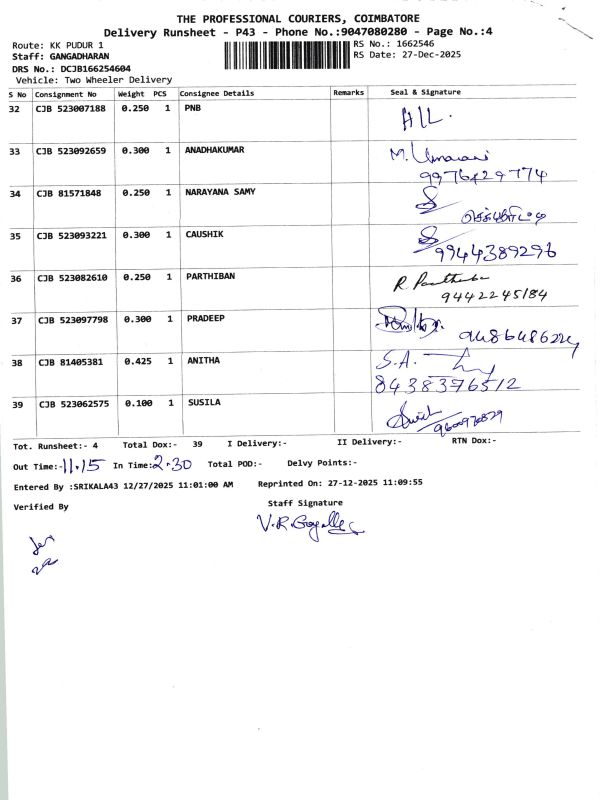 THE PROFESSIONAL COURIERS, COIMBATORE
Delivery Runsheet - P43 - Phone No.:9047080280 - Page No.:4
Route: KK PUDUR 1 RS No.: 1662546
Staff: GANGADHARAN RS Date: 27-Dec-2025
DRS No.: DCJB166254604
Vehicle: Two Wheeler Delivery
S No Consignment No Weight PCS Consignee Details Remarks Seal & Signature
32 CJB 523007188 0.250 1 PNB
33 CJB 523092659 0.300 1 ANADHAKUMAR M.
9976429774
34 CJB 81571848 0.250 1 NARAYANA SAMY
35 CJB 523093221 0.300 1 CAUSHIK
9944389296
36 CJB 523082610 0.250 1 PARTHIBAN R.
9442245184
37 CJB 523097798 0.300 1 PRADEEP
38 CJB 81405381 0.425 1 ANITHA S.A.
8438376512
39 CJB 523062575 0.100 1 SUSILA
Tot. Runsheet:- 4 Total Dox:- 39 I Delivery:- II Delivery:- RTN Dox:-
Out Time:-11.15 In Time:2.30 Total POD:- Delvy Points:-
Entered By :SRIKALA43 12/27/2025 11:01:00 AM Reprinted On: 27-12-2025 11:09:55
Verified By Staff Signature
V.R.